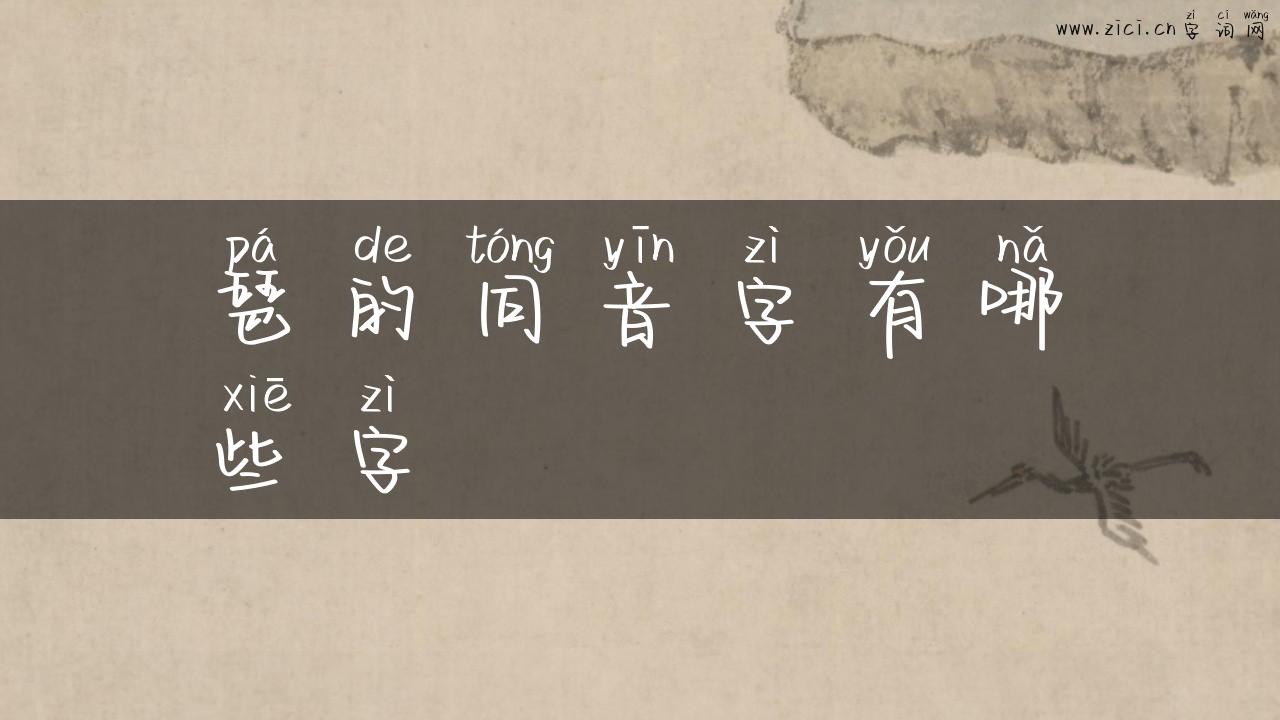 zì cí wǎng
www.zici.cn 字 词 网
pá de tóng yīn zì yǒu nǎ
琶 的 同 音 字 有 哪
xiē zì
些 字